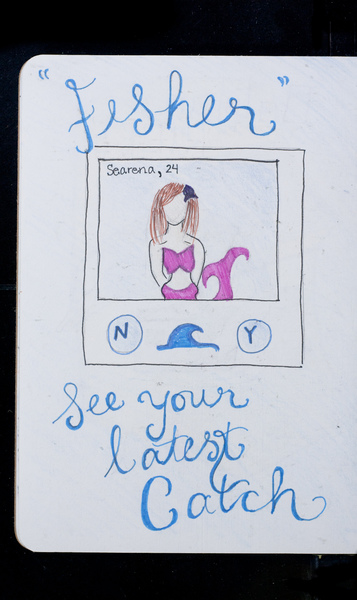 "Fisher"
Searena, 24
N Y
See your
latest
Catch